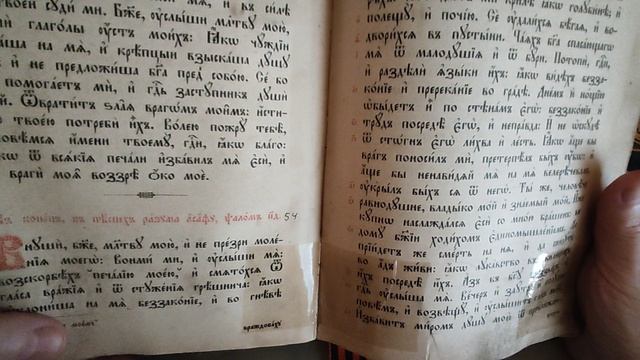 твоей суди ми. Бж҃е, ᲂу҆слы́ши мл҃тву мою̀,
глаго́лы ᲂу҆́стъ мои́хъ: Ꙗ҆́кѡ чꙋ́ждїи
ша на мѧ̀, и҆ крѣ́пцыи взыска́ша дꙋ́шꙋ
и҆ не предложи́ша бг҃а пред̾ собо́ю. Се́ бо
помога́етъ мѝ, и҆ гд҇ь застꙋ́пникъ дꙋшѝ
й. Ѿврати́тъ ѕла̑ѧ врагѡ́мъ мои̑мъ: и҆́сти-
твое́ю потребѝ и҆̀хъ. Во́лею пожрꙋ̀ тебѣ̀,
повѣ́мсѧ и҆́мени твоемꙋ̀, гд҇и, ꙗ҆́кѡ бл҃го:
кѡ ѿ всѧ́кїѧ печа́ли и҆зба́вилъ мѧ̀ є҆сѝ, и҆
врагѝ моѧ̑ воззрѣ̀ ѻ҆́ко моѐ.
въ коне́цъ, въ пѣ́снехъ ра́зꙋма а҆са́фꙋ, ѱало́мъ н҃д. 54
Внꙋшѝ, бж҃е, мл҃твꙋ мою̀, и҆ не пре́зри моле́-
нїѧ моегѡ̀: Вонми́ ми, и҆ ᲂу҆слы́ши мѧ̀:
возскорбѣ́хъ печа́лїю мое́ю, и҆ смѧто́хсѧ Ѿ
гла́са вра́жїѧ и҆ ѿ стꙋже́нїѧ грѣ́шнича: ꙗ҆́кѡ
ᲂу҆клони́ша на мѧ̀ беззако́нїе, и҆ во гнѣ́вѣ
враждова́хꙋ
крилѣ̀ ꙗ҆́кѡ голꙋби́нѣ; и҆
полещꙋ̀, и҆ почі́ю. Сѐ ᲂу҆дали́хсѧ бѣ́гаѧ, и҆ во-
двори́хсѧ въ пꙋсты́ни. Ча́ѧхъ бг҃а спаса́ющаго
мѧ̀ ѿ малодꙋ́шїѧ и҆ ѿ бꙋ́ри. Потопѝ, гд҇и,
и҆ раздѣлѝ ѧ҆зы́ки и҆́хъ: ꙗ҆́кѡ ви́дѣхъ безза-
ко́нїе и҆ пререка́нїе во гра́дѣ. Дне́мъ и҆ но́щїю
ѡ҆бы́детъ и҆̀ по стѣна́мъ є҆гѡ̀: беззако́нїе и҆
трꙋ́дъ посредѣ̀ є҆гѡ̀, и҆ непра́вда: И҆ не ѡ҆скꙋдѣ̀
ѿ сто́гнъ є҆гѡ̀ ли́хва и҆ ле́сть. Ꙗ҆́кѡ а҆́ще бы
вра́гъ поноси́лъ мѝ, претерпѣ́лъ бы́хъ ᲂу҆́бѡ: и҆
а҆́ще бы ненави́дѧй мѧ̀ на мѧ̀ велерѣ́чевалъ,
ᲂу҆кры́лъ бы́хсѧ ѿ негѡ̀. Ты́ же, человѣ́че
равнодꙋ́шне, влады́ко мо́й и҆ зна́емый мо́й, И҆́же
кꙋ́пнѡ наслажда́лсѧ є҆сѝ со мно́ю бра́шенъ:
домꙋ̀ бж҃їи ходи́хомъ є҆диномышле́нїемъ.
прїи́детъ же сме́рть на нѧ̀, и҆ да сни́дꙋтъ
во а҆́дъ жи́ви: ꙗ҆́кѡ лꙋка́вство въ
и҆́хъ посредѣ̀ и҆́хъ. А҆́зъ къ бг҃ꙋ
гд҇ь ᲂу҆слы́ша мѧ̀. Ве́черъ и҆ заꙋ́тра
повѣ́мъ, и҆ возвѣщꙋ̀, и҆ ᲂу҆слы́шитъ
И҆зба́витъ ми́ромъ дꙋ́шꙋ мою̀ ѿ